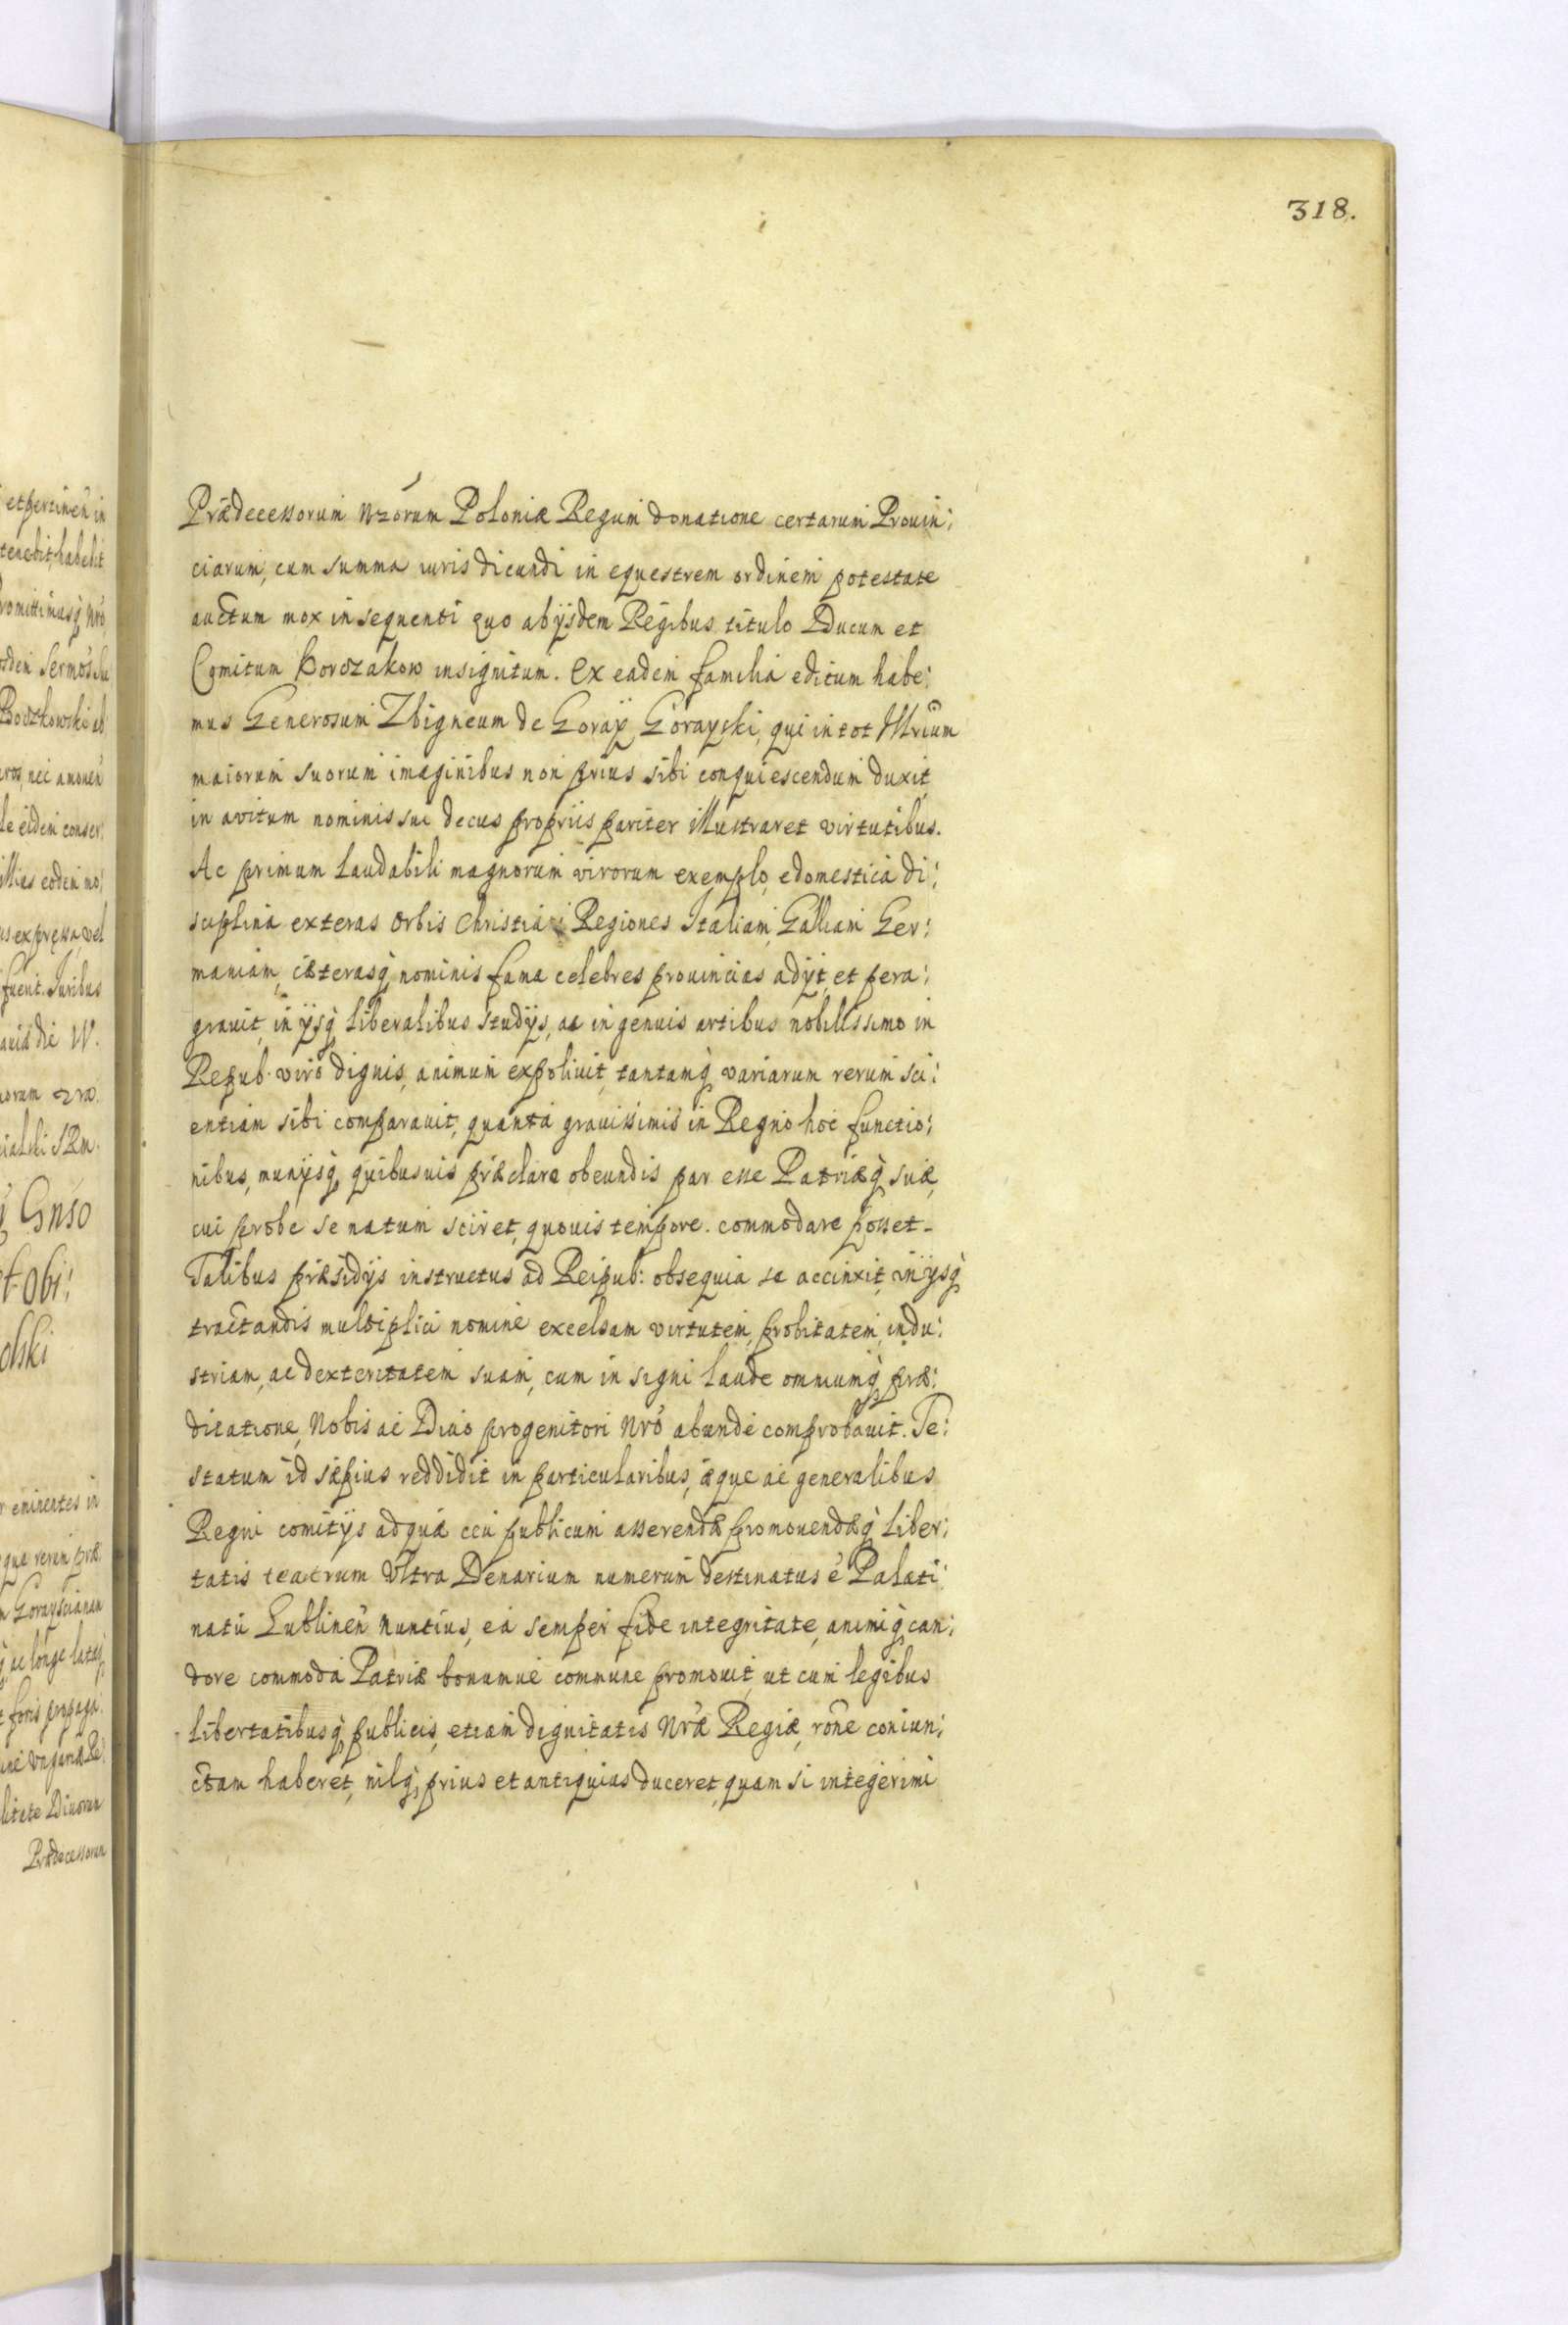 318.
Prædecessorum Nrõrum Poloniæ Regum donatione certarum Prouin:
ciarum, cum summa iuris dicundi in equestrem ordinem potestate
auctum mox insequenti quo ab ijsdem Regibus titulo Ducum et
Comitum Korczakow insignitum. Ex eadem familia editum habe:
mus Generosum Zbigneum de Goraÿ Gorayski, qui in tot Illrium
maiorum suorum imaginibus non prius sibi conquiescendum duxit,
in avitum nominis sui decus propriis pariter illustraret virtutibus.
Ac primum laudabili magnorum virorum exemplo, e domestica di:
sciplina exteras orbis Christiani Regiones Italiam, Galliam Ger:
maniam, cæterasq̀ nominis fama celebres prouincias adijt, et pera:
grauit, in ijsq̀ liberalibus studijs, ac ingenuis artibus nobilissimo in
Repub. viro dignis, animum expoliuit, tantamq̀ variarum rerum sci:
entiam sibi comparauit, quanta grauissimis in Regno hoc functio:
nibus, munijsq̀ quibusuis præclare obeundis par esse Patriæq̀ suæ,
cui probe se natum sciret, quouis tempore. commodare posset.
Talibus præsidijs instructus ad Reipub: obsequia se accinxit, in ijsq̀
tractandis multiplici nomine excelsam virtutem, probitatem, indu:
striam, ac dexteritatem suam, cum insigni laude omniumq̀ præ:
dicatione, Nobis ac Diuo progenitori Nrõ abunde comprobauit. Te:
statum id sæpius reddidit in particularibus, æque ac generalibus
Regni comitijs ad quæ ceu publicum asserendæ promouendæq̀ liber:
tatis teatrum Vltra Denarium numerum destinatus è Palati:
natu Lublineñ Nuntius, ea semper fide integritate, animiq̀ can:
dore commoda Patriæ bonumue commune promouit, ut cum legibus
libertatibusq̀ publicis, etiam dignitatis Nræ Regiæ, rõne coniun:
ctam haberet, nilq̀ prius et antiquius duceret, quam si integerimi